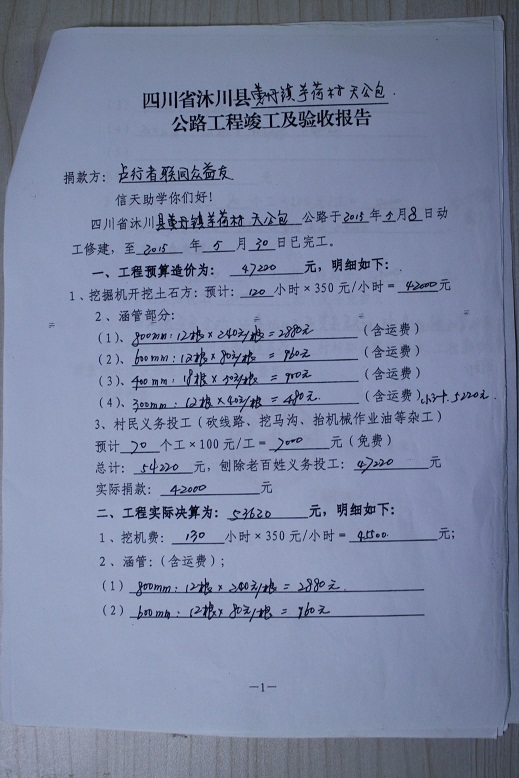 四川省沐川县黄丹镇羊荷村 天公包
公路工程竣工及验收报告
捐款方：点行者联同众益友
信天助学你们好！
四川省沐川县黄丹镇羊荷村 天公包 公路于2015年5月8日动
工修建，至 2015 年 5 月 30 日已完工。
一、工程预算造价为： 47220 元，明细如下：
1、挖掘机开挖土石方：预计： 120 小时×350元/小时＝ 42000 元
2、涵管部分：
（1）、800mm：12根×240元/根＝2880元（含运费）
（2）、600mm：12根×80元/根＝960元（含运费）
（3）、400mm：18根×50元/根＝900元（含运费）
（4）、300mm：12根×40元/根＝480元（含运费）小计：5220元
3、村民义务投工（砍线路、挖马沟、抬机械作业油等杂工）
预计 70 个工×100元/工＝ 7000 元（免费）
总计： 54220 元，刨除老百姓义务投工： 47220 元
实际捐款： 42000 元
二、工程实际决算为： 53620 元，明细如下：
1、挖机费： 130 小时×350元/小时＝ 45500 元；
2、涵管：（含运费）；
（1）800mm：12根×240元/根＝2880元
（2）600mm：12根×80元/根＝960元
—1—